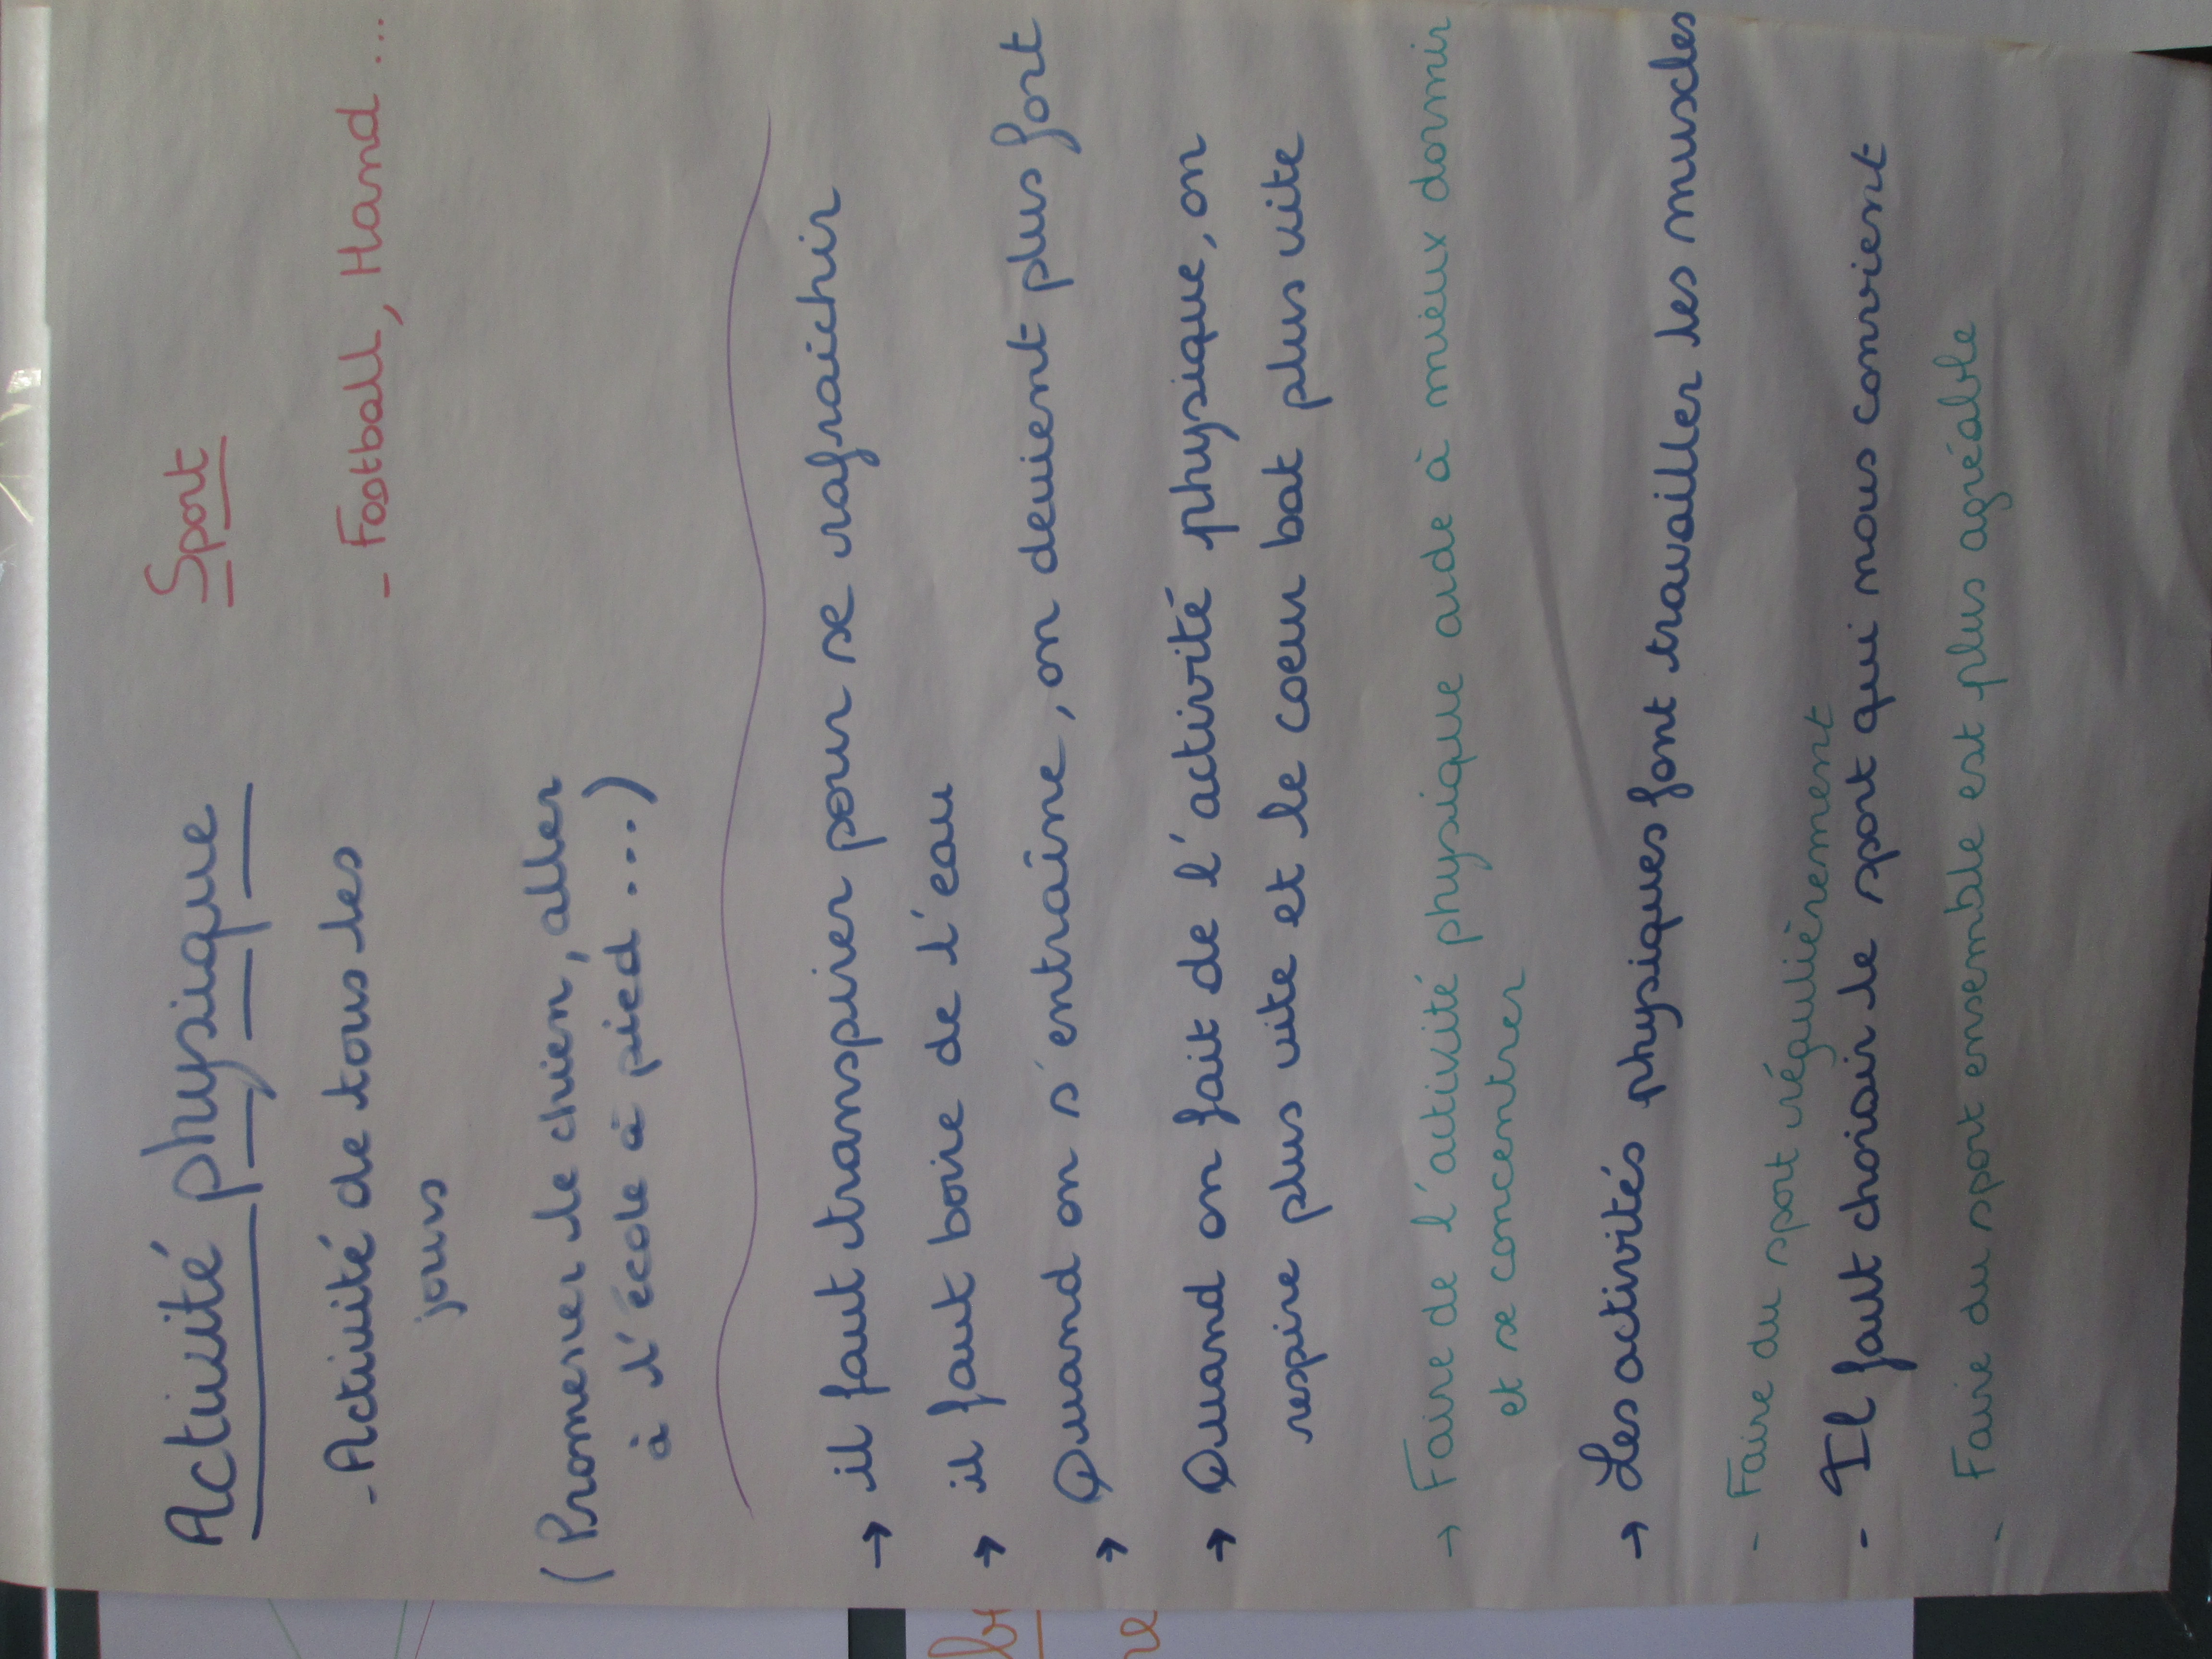 Activité physique
Sport
- Activité de tous les
jours
- Football, Hand ...
(Promener le chien, aller
à l'école à pied ....)
→ il faut transpirer pour se rafraichir
→ il faut boire de l'eau
→ Quand on s'entraîne, on devient plus fort
→ Quand on fait de l'activité physique, on
respire plus vite et le coeur bat plus vite
→ Faire de l'activité physique aide à mieux dormir
et se concentrer
→ Les activités physiques font travailler les muscles
- Faire du sport régulièrement
- Il faut choisir le sport qui nous convient
- Faire du sport ensemble est plus agréable